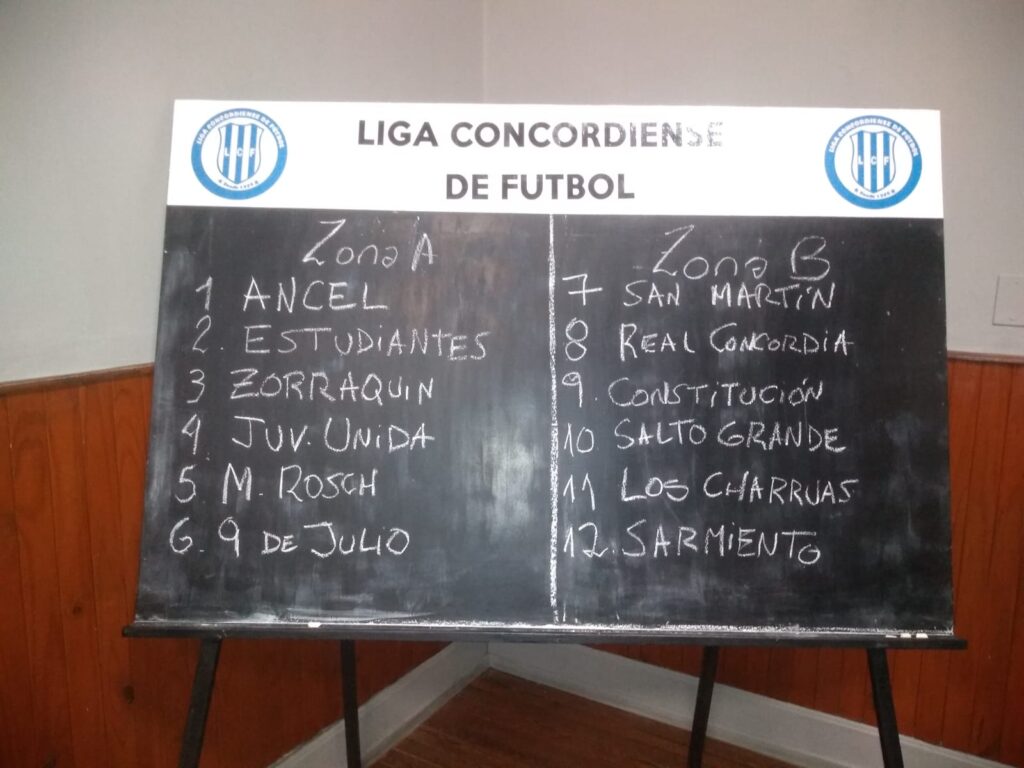 LIGA CONCORDIENSE
DE FUTBOL
LIGA CONCORDIENSE DE FUTBOL
LCF
LIGA CONCORDIENSE DE FUTBOL
LCF
Zona A
1 ANCEL
2. ESTUDiANTES
3 ZORRAQUIN
4 JUV. UNiDA
5. M. ROSCH
6. 9 DE JULIO
Zona B
7 SAN MARTÍN
8 REAL CONCORDIA
9. CONSTITUCIÓN
10 SALTO GRANDE
11 LOS CHARRUAS
12. SARMiENTO